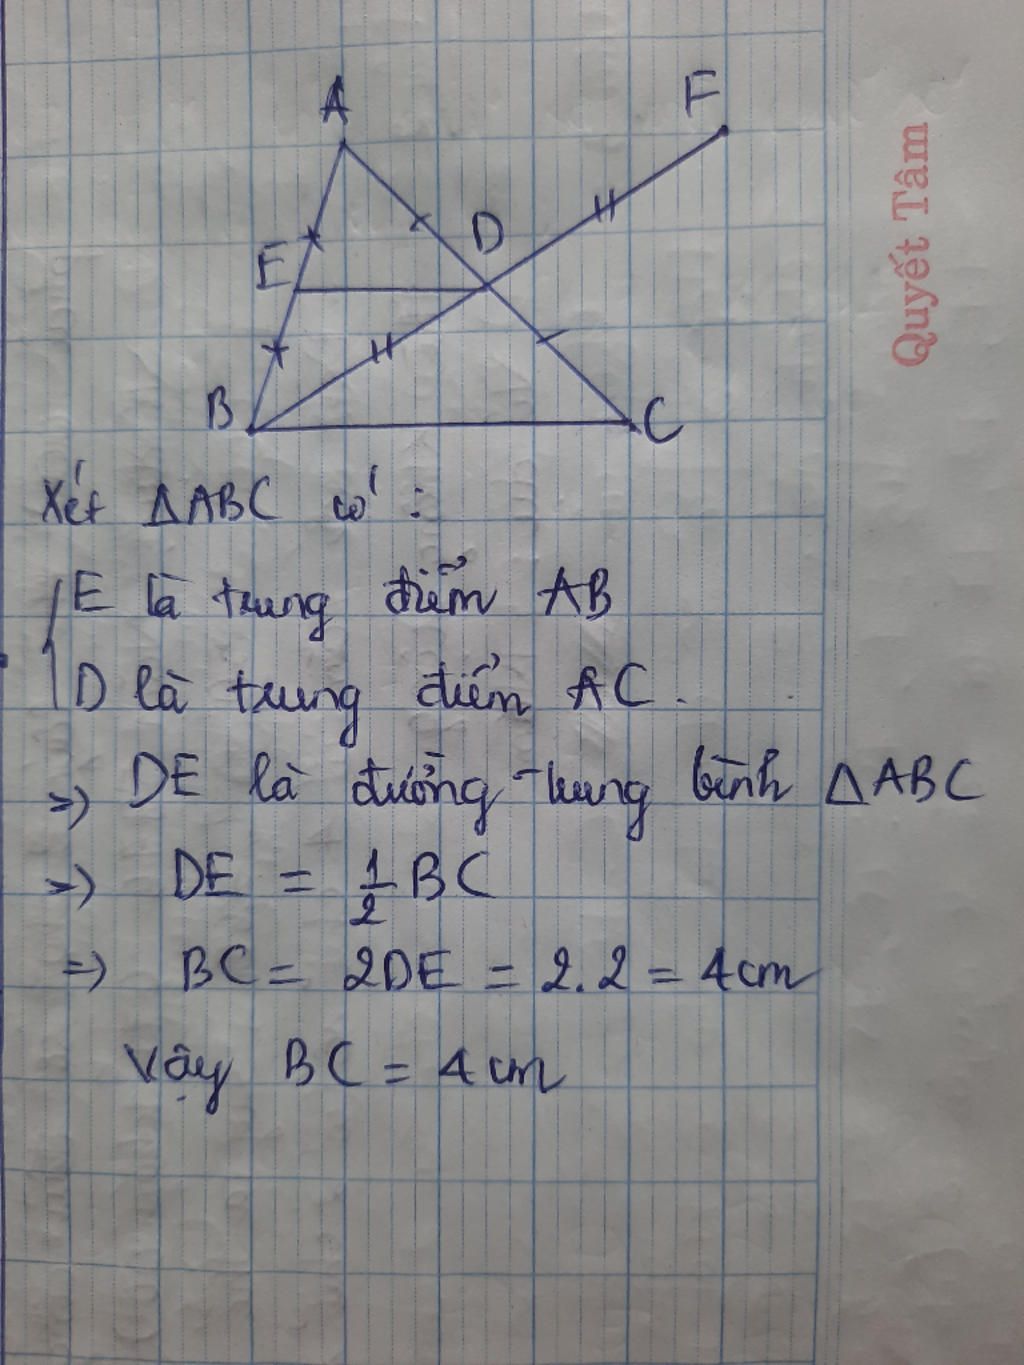 A
F
D
E
B
C
Quyết Tâm
Xét ΔABC có :
E là trung điểm AB
D là trung điểm AC .
=> DE là đường trung bình ΔABC
=> DE = 1/2 BC
=> BC = 2DE = 2.2 = 4cm
Vậy BC = 4cm